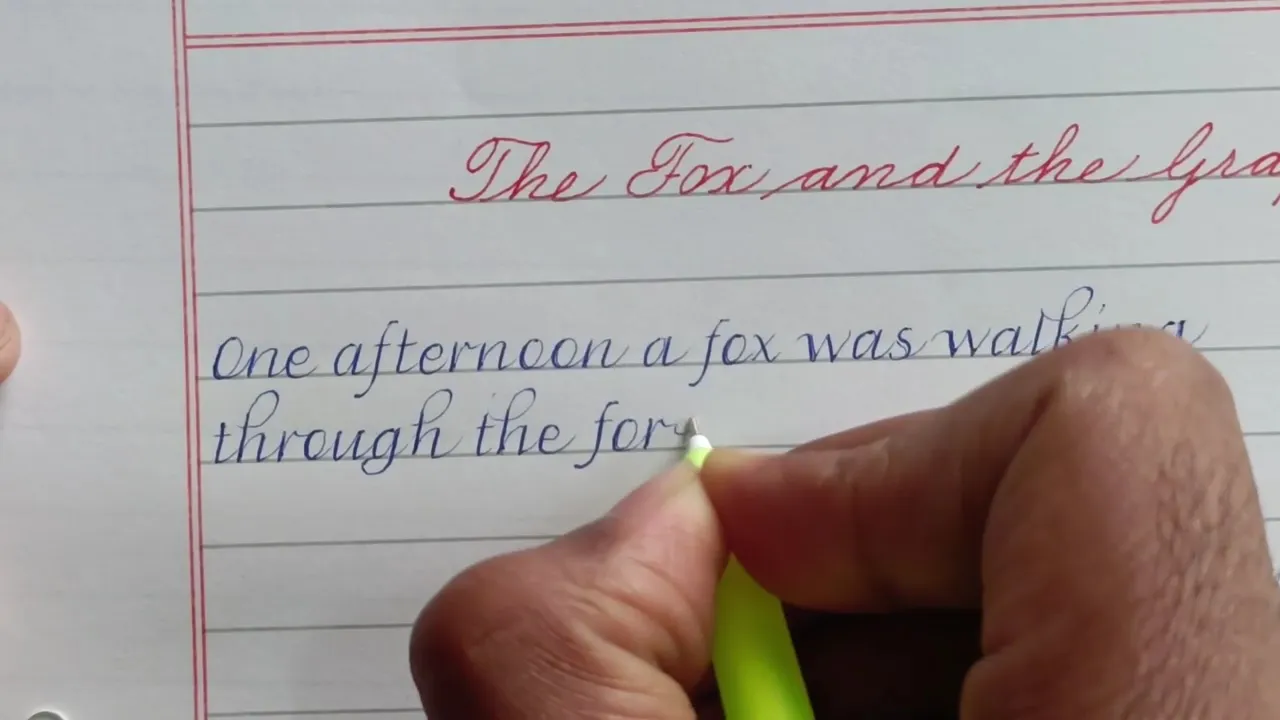 The Fox and the Gra
One afternoon a fox was walking
through the for